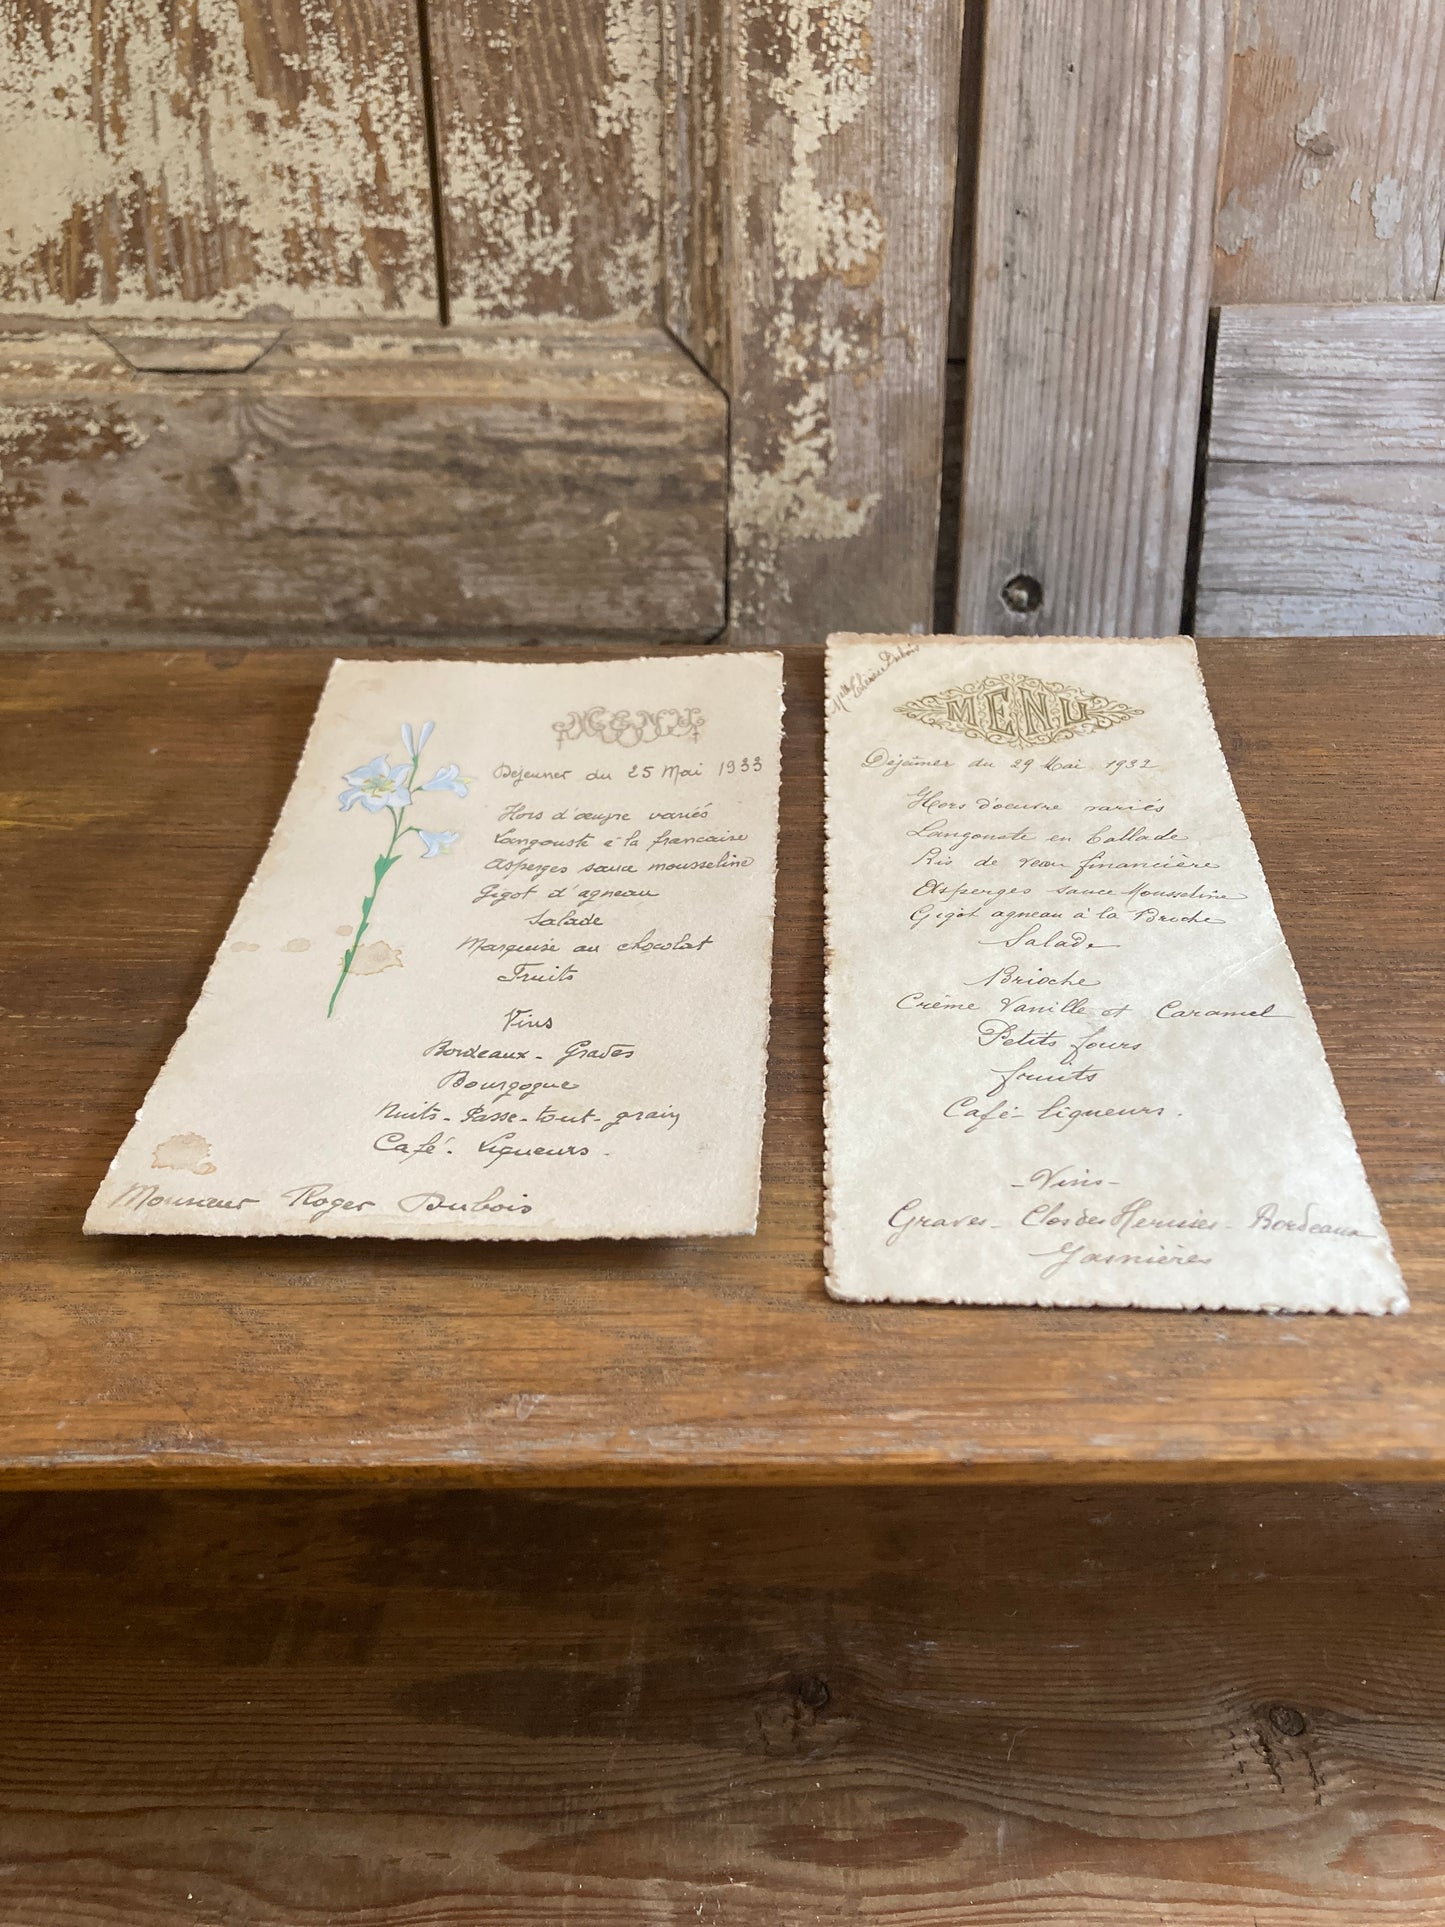 MENU
Déjeuner du 25 Mai 1933
Hors d'œuvre variés
Langouste à la francaise
Asperges sauce mousseline
Gigot d'agneau
Salade
Marquise au chocolat
Fruits
Vins
Bordeaux - Graves
Bourgogne
Nuits - Passe-tout-grain
Café - Liqueurs.
Monsieur Roger Dubois
Dubois
MENU
Déjeuner du 29 Mai 1932
Hors d'oeuvre variés
Langouste en
Ris de veau financière
Asperges sauce Mousseline
Gigot agneau à la Broche
Salade
Brioche
Crème Vanille et Caramel
Petits fours
fruits
Café - liqueurs.
- Vins -
Graves - Clos des - Bordeaux